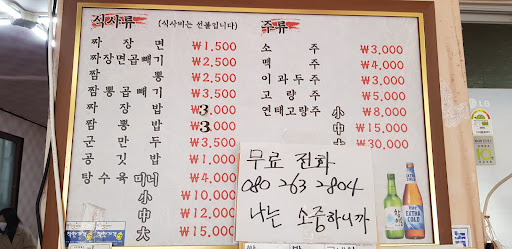 식사류 (식사비는 선불입니다)
짜장면 ₩1,500
짜장면곱빼기 ₩2,500
짬뽕 ₩2,500
짬뽕곱빼기 ₩3,500
짜장밥 ₩3,000
짬뽕밥 ₩3,000
군만두 ₩3,500
공깃밥 ₩1,000
탕수육 미니 ₩4,000
小 ₩10,000
中 ₩12,000
大 ₩15,000
주류
소주 ₩3,000
맥주 ₩4,000
이과두주 ₩3,000
고량주 ₩5,000
연태고량주 小 ₩8,000
中 ₩15,000
大 ₩30,000
무료 전화
080 263 2804
나는 소중하니까
EXTRA COLD
LG